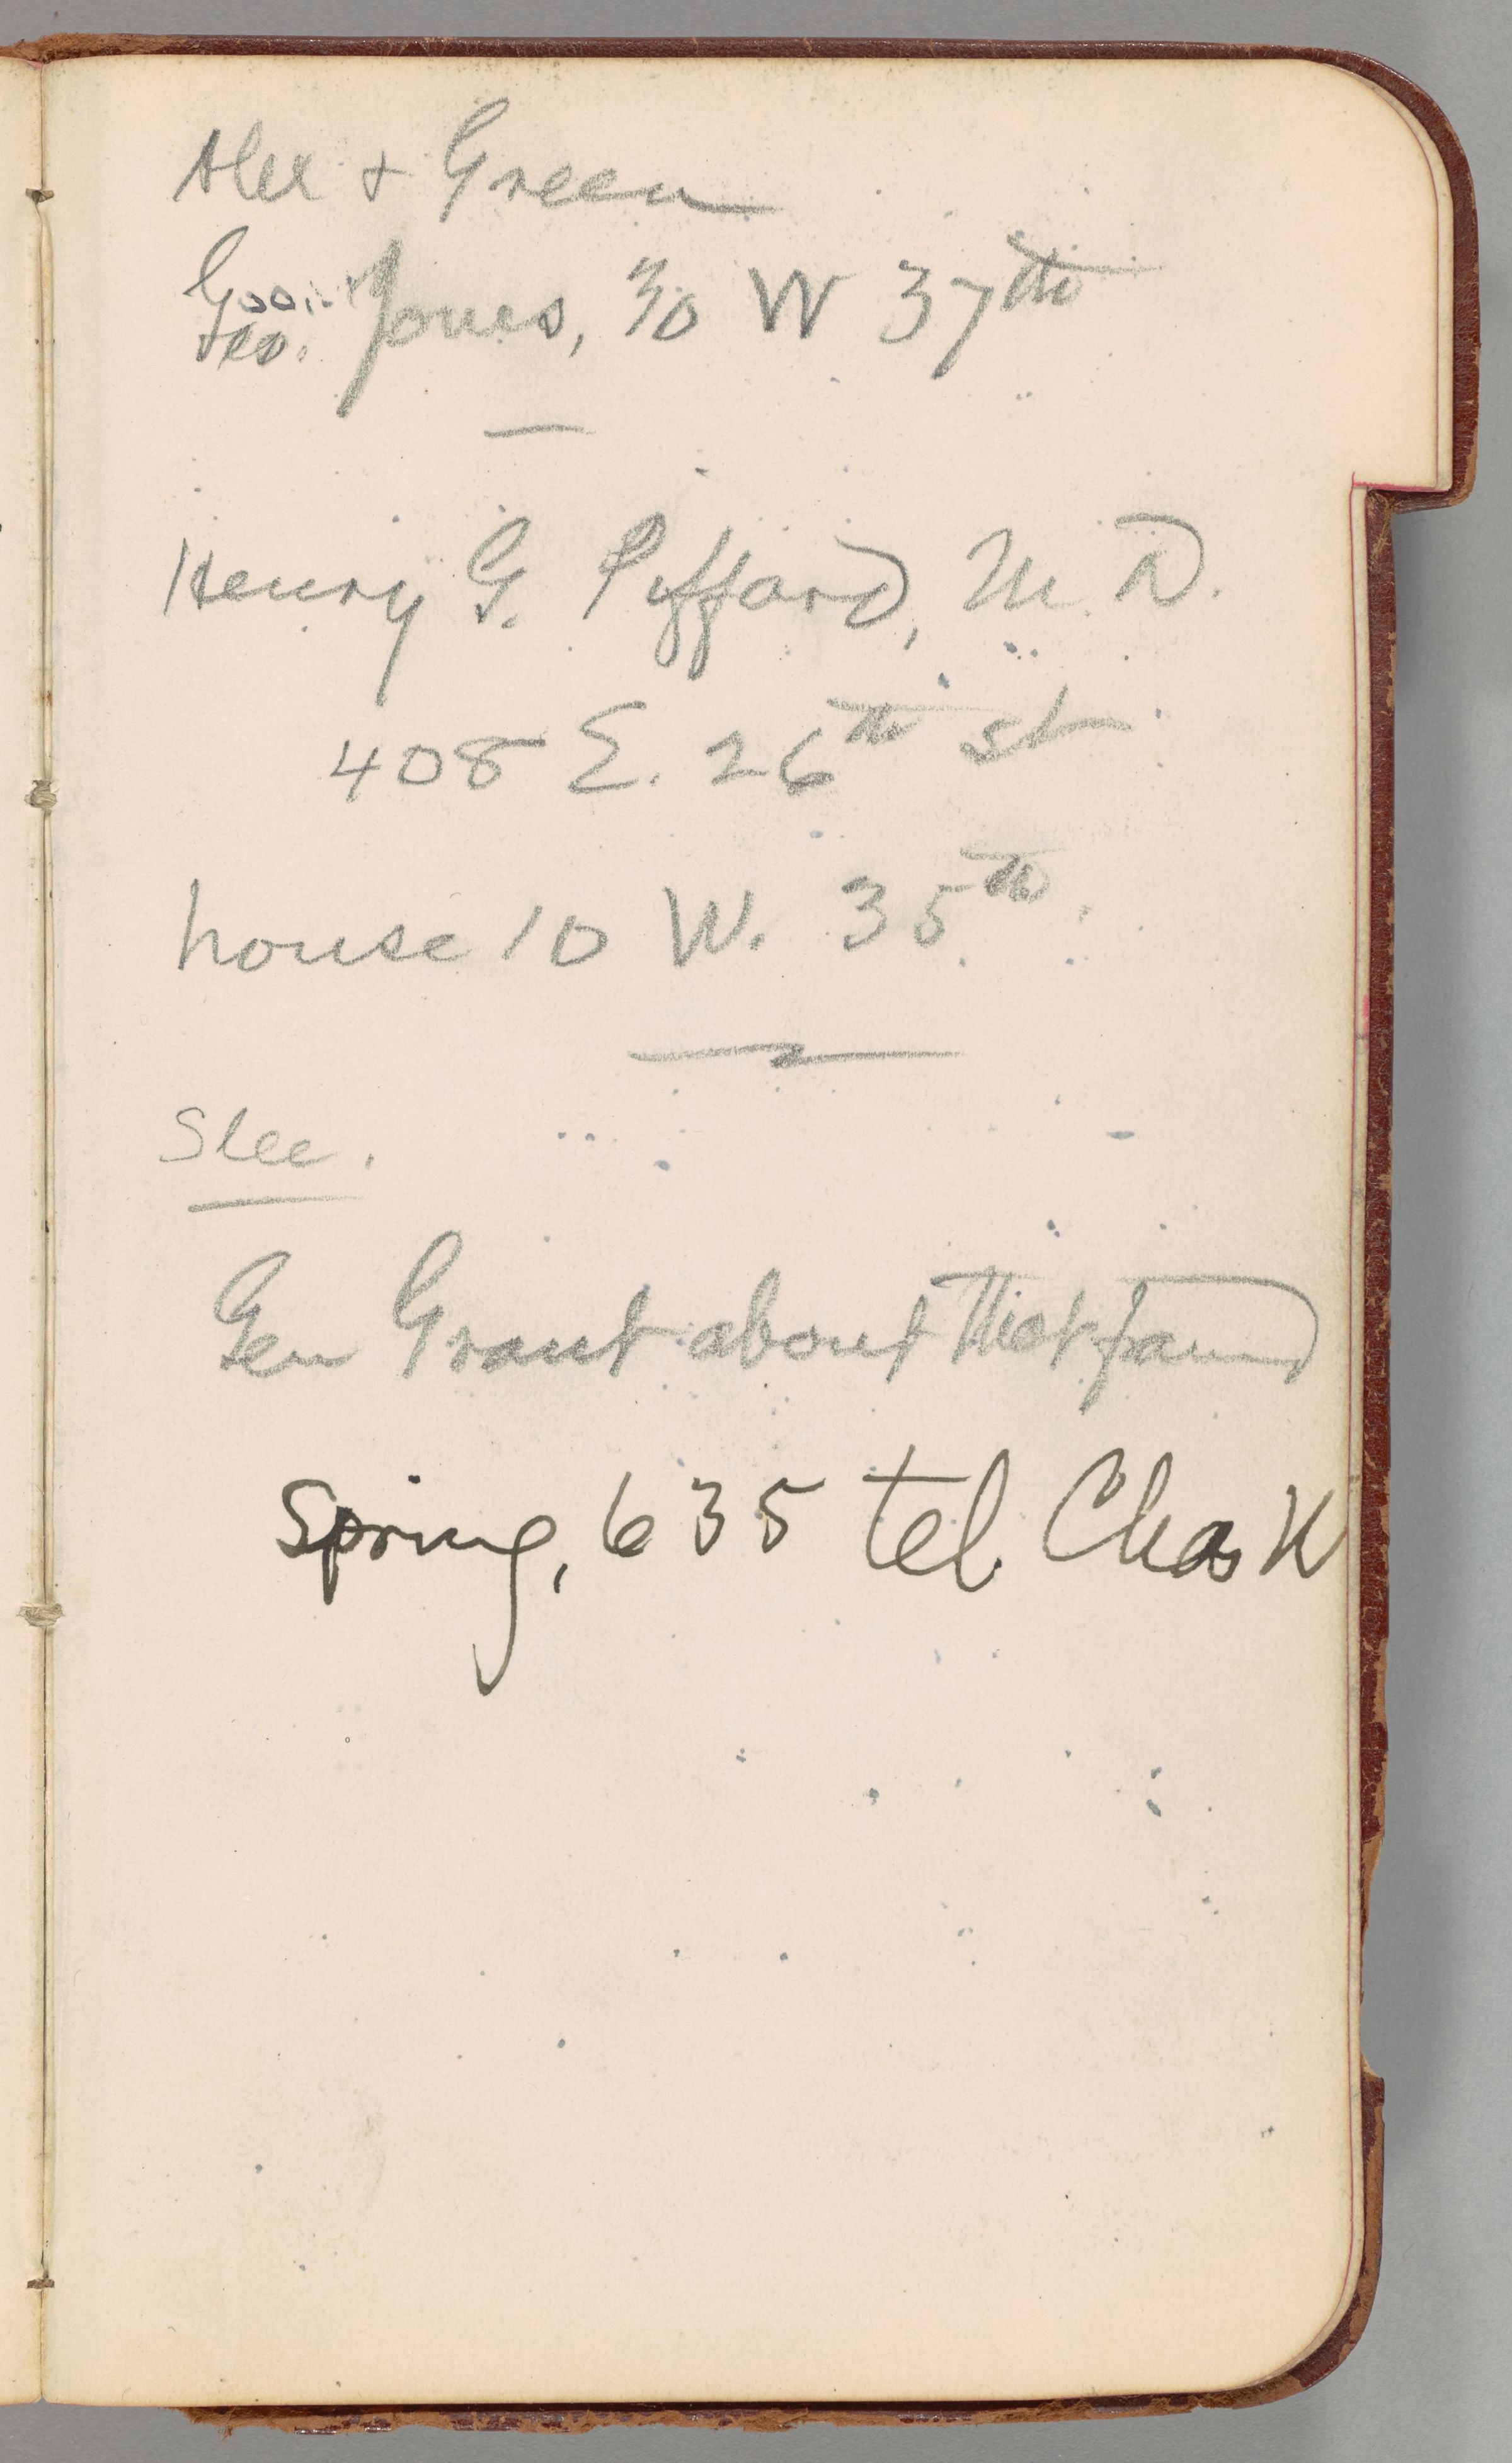 Alex & Green
Geo. Jones, 30 W 37th
Geo.
Henry G. Piffard, M.D.
408 E. 26th st
house 10 W. 35th.
Slee.
Gen Grant about that found
Spring, 635 tel. Chas W